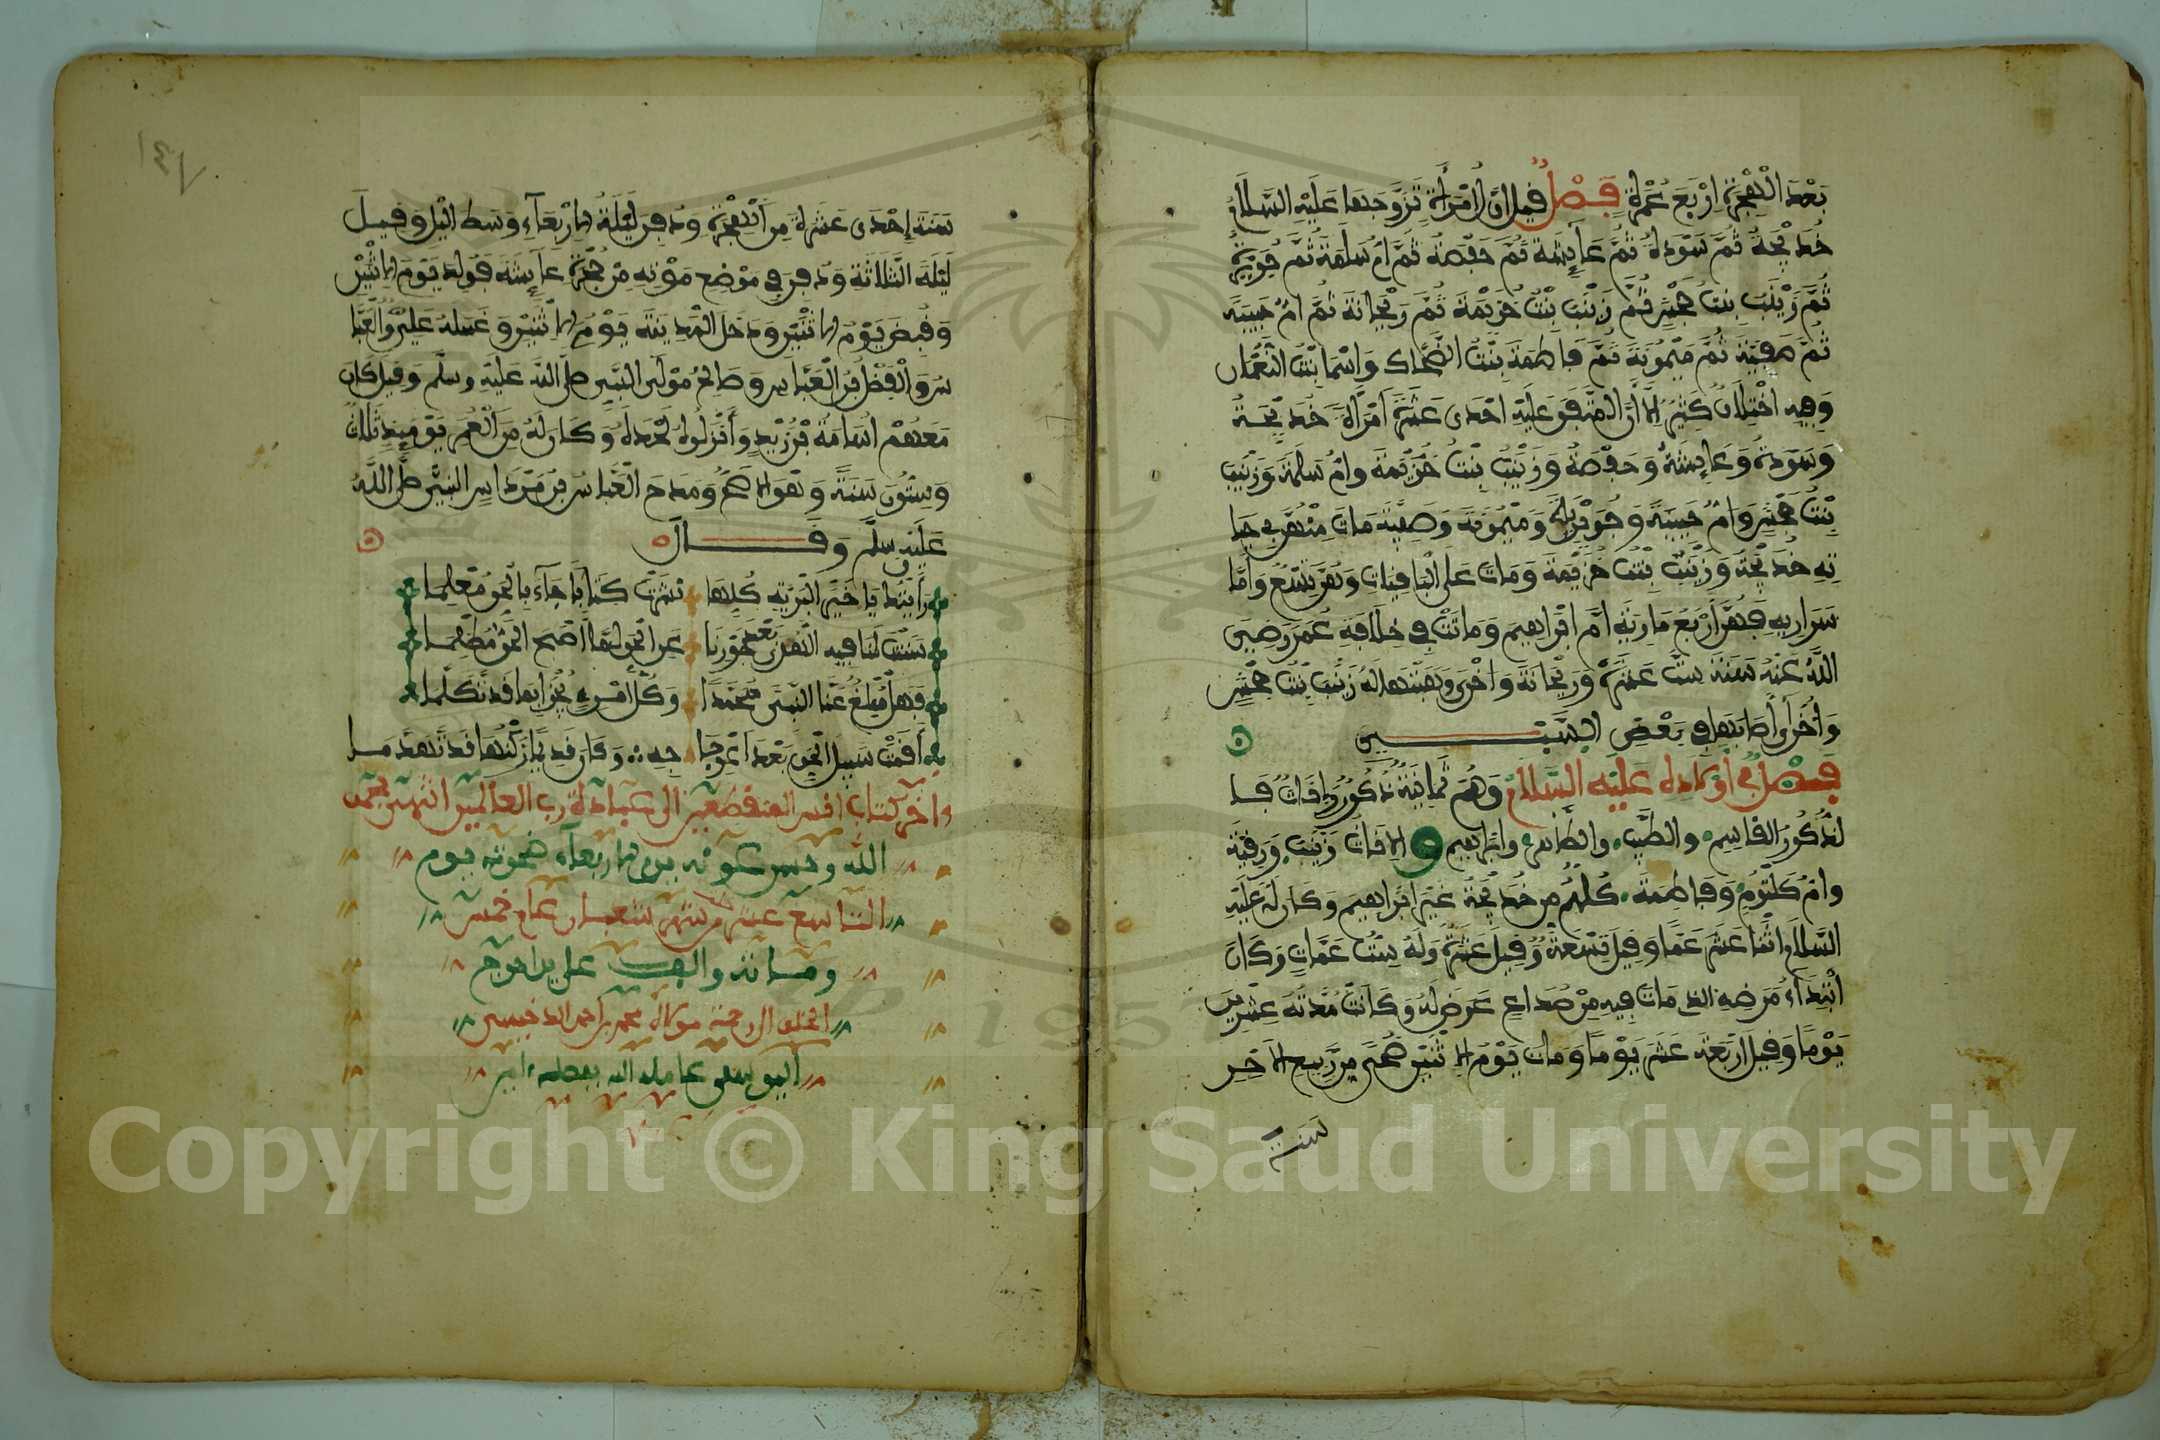 بَعْدَ الْهِجْرَةِ ارْبَعَ عُمْرَةٍ فَصْلٌ قيل اوّل امْرَأَةٍ تَزَوَّجَهَا عَلَيْهِ السَّلَامُ
خَدِيجَةُ ثُمَّ سَوْدَةُ ثُمَّ عَآيِشَة ثُمَّ حَفْصَةُ ثُمَّ أمُّ سَلَمَةَ ثُمَّ جُوَيْرِيَةُ
ثُمَّ زَيْنَبُ بِنْتُ جَحْشٍ ثُمَّ زَيْنَبُ بِنْتُ خُزَيْمَةَ ثُمَّ رَيْحَانَةَ ثُمَّ امُّ حَبِيبَةَ
ثُمَّ صَفِيَّةَ ثُمَّ مَيْمُونَةَ ثُمَّ فَاطِمَةَ بِنْتُ الضَّحَّاك وَاسْمَا بِنْتُ النُّعْمَان
وَفِيهِ اخْتِلَافٌ كَثِيرٌ الَّا أنَّ المتّفَقَ عَلَيْهِ احْدَى عَشْرَةَ امْرَأَةً خَدِيجَةُ
وَسَوْدَةُ وَعَايِشَةُ وَحَفْصَةُ وَزَيْنَبُ بِنْتُ خُزَيْمَةَ وامُّ سَلَمَةَ وَزَيْنَبَ
بِنْتُ جَحْشٍ وَامُّ حَبِيبَةَ وَجُوَيْرِيَةَ وَمَيْمُونَةَ وَصَفِيَّةَ مَاتَ مِنْهُنَّ فِي حَيَا
تِهِ خَدِيجَةُ وَزَيْنَبُ بِنْتُ خُزَيْمَةَ وَمَاتَ عَلَى الْبَاقِيَاتِ وَهُنَّ تِسْعٌ وَأَمَّا
سَرَارِيهِ فَهُنَّ أَرْبَعٌ مَارِيَةِ أمّ ابْرَاهِيمَ وَمَاتَتْ فِي خِلَافَةِ عُمَرَ رَضِيَ
اللَّهُ عَنْهُ سَنَةَ سِتَّ عَشَرَةَ وَرَيْحَانَةَ وَاخْرَى وَهَبَتْهَا لَهُ زَيْنَبُ بِنْتُ جَحْشٍ
وَأُخْرَى أَصَابَهَا فِي بَعْضِ السَّبْيِ
فَصْلٌ فِي أَوْلَادِهِ عَلَيْهِ السَّلَامُ وَهُمْ ثَمَانِيَةٌ ذُكُورٌ وَإنَاثٌ فَا
لذُّكُورُ القَاسِمِ والطَّيِّبُ والطَّاهِرُ وابْراهيم و الانَاثُ زَيْنَبُ وَرُقَيَّةَ
وامُّ كُلْثُومٍ وَفَاطِمَةَ كُلُّهُمْ مِنْ خَدِيجَةَ غَيْرَ ابْرَاهِيمَ وَكَانَ لَهُ عَلَيْهِ
السَّلَامُ اثْنَا عَشَرَ عَمًّا وَقِيلَ تِسْعَةٌ وَقِيلَ عَشَرَةٌ وَلَهُ سِتُّ عَمَّاتٍ وَكَانَ
ابْتِدَاءُ مَرَضِهِ الذي مَاتَ فِيهِ مِنْ صُدَاعٍ عَرَضَ لَهُ وَكَانَتْ مُدَّتُهُ عِشْرِينَ
يَوْمًا وَقِيلَ ارْبَعَةَ عَشَرَ يَوْمًا وَمَاتَ يَوْمَ الاثْنَيْنِ ضُحًى مِنْ رَبِيعِ الاخِرِ
سنة
١٤٧
سَنَةَ إِحْدَى عَشَرَةَ مِنَ الْهِجْرَةِ وَدُفِنَ لَيْلَةَ الارْبَعَآءِ وَسَطَ الليْلِ وَقِيلَ
لَيْلَةَ الثَّلَاثَةِ وَدُفِنَ فِي مَوْضِعِ مَوْتِهِ مِنْ حُجْرَةِ عَآيِشَةَ فَوُلِدَ يَوْمَ الاثْنَيْنِ
وَقُبِضَ يَوْمَ الاثْنَيْنِ وَدَخَلَ الْمَدِينَةَ يَوْمَ الاثْنَيْنِ وَغَسَلَهُ عَلِيٌّ وَالْعَبَّا
سُ وَالْفَضْلُ بْنُ الْعَبَّاسِ وَصَالِحُ مَوْلَى النَّبِيِّ صلَّى اللَّهُ عَلَيْهِ وسلَّم وَقِيلَ كَانَ
مَعَهُمْ اُسَامَةُ بْنُ زَيْدٍ وَأَنْزَلُوهُ لَحْدَهُ وَكَانَ لَهُ مِنَ الْعُمْرِ يَوْمَيِذٍ ثَلَاثٌ
وَسِتُّونَ سَنَةً وَهُوَ الاصَحُّ وَمَدَحَ الْعَبَّاسُ بْنُ مِرْدَاسٍ النَّبِيَّ صَلَّى اللَّهُ
عَلَيْهِ وسلَّم وَقَالَ
رَأَيْتُكَ يَا خَيْرَ الْبَرِيَّةِ كُلِّهَا نَشَرْتَ كِتَابًا جَآءَ بِالْحَقِّ مُعْلِمَا
سَنَنْتَ لَنَا فِيهِ الْهُدَى بَعْدَ جَوْرِنَا عَنِ الْحَقِّ لمّا أَصْبَحَ الْحَقُّ مُظْلِمَا
فَهَلْ مُبْلِغٌ عَنَّا النَّبِيَّ مُحَمَّدًا وَكُلُّ امْرِئٍ يُجْزَى بِمَا قَدْ تَكَلَّمَا
أَقَمْتَ سَبِيلَ الْحَقِّ بَعْدَ اعْوِجَاجِهِ وَكَانَ قَدِيمًا رُكْنُهَا قَدْ تَهَدَّمَا
ءاخر كتاب انس المنقطعين الى عبادة رب العالمين انتهى بحمد
الله وحسن عونه يوم الاربعاء ضحوته يوم
التاسع عشر من شهر شعبان عام خمس
ومائة والف على يد احوج
الخلق الى رحمة مولاه محمد بن احمد
اليوسي عامله الله بفضله ءامين